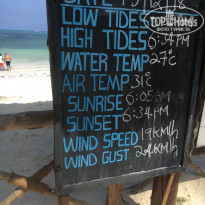 DATE
LOW TIDES
HIGH TIDES 6:34 PM
WATER TEMP 27°C
AIR TEMP 31°C
SUNRISE 6:05 AM
SUNSET 6:34 PM
WIND SPEED 19 KM/h
WIND GUST 24 KM/h
TopHotels
ФОТО ТУРИСТА